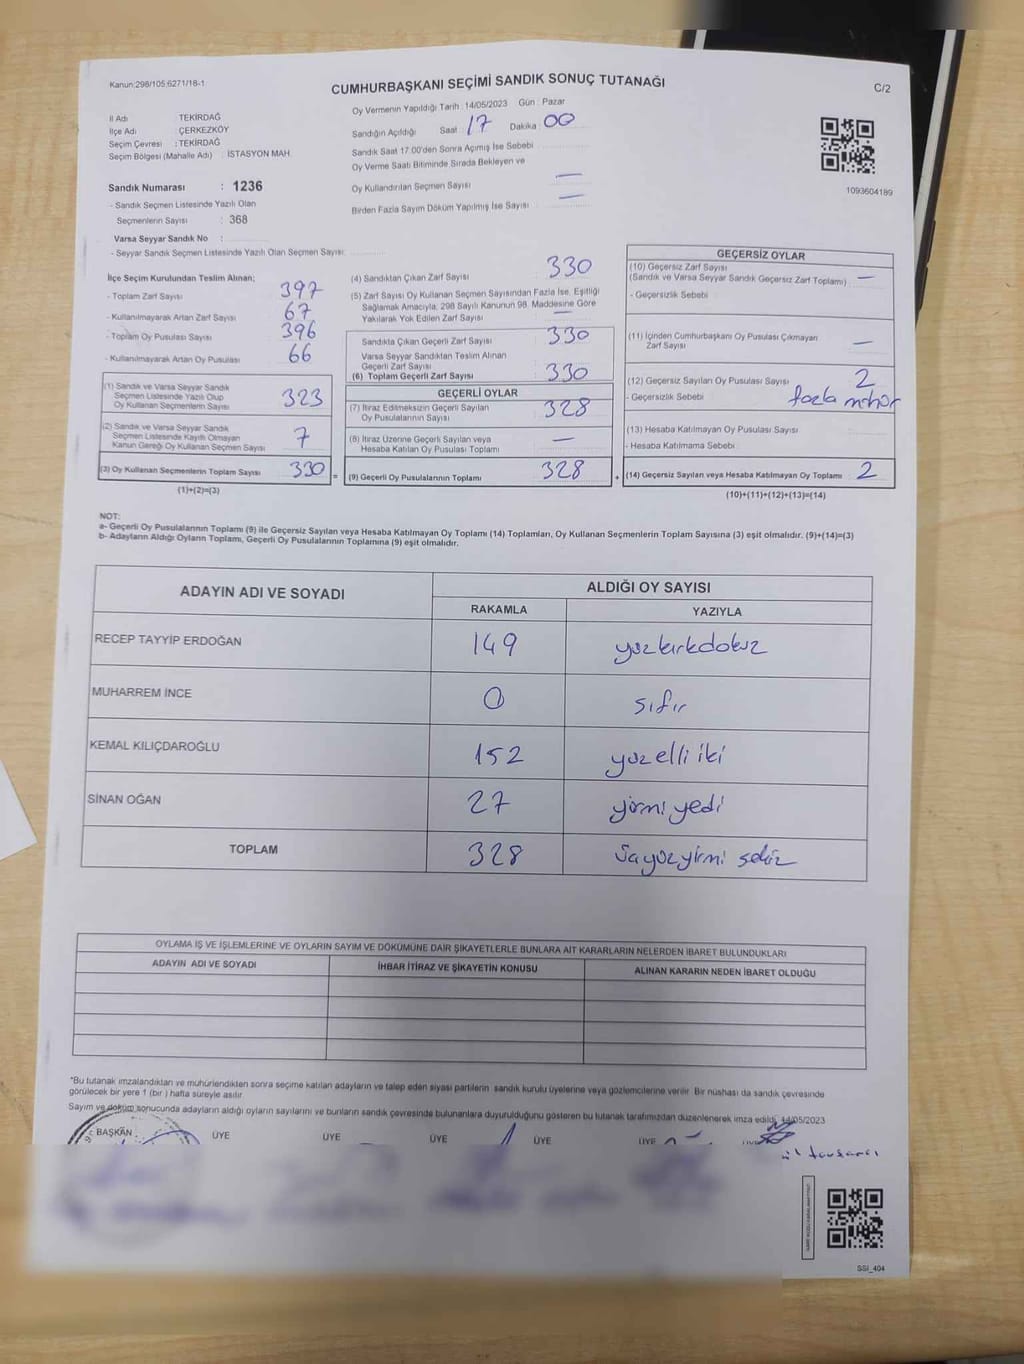 Kanun:298/105,6271/18-1
CUMHURBAŞKANI SEÇİMİ SANDIK SONUÇ TUTANAĞI
C/2
Oy Vermenin Yapıldığı Tarih : 14/05/2023 Gün : Pazar
İl Adı : TEKİRDAĞ
İlçe Adı : ÇERKEZKÖY
Seçim Çevresi : TEKİRDAĞ
Seçim Bölgesi (Mahalle Adı) : İSTASYON MAH.
Sandığın Açıldığı Saat : 17 Dakika : 00
Sandık Saat 17:00'den Sonra Açımış İse Sebebi
Oy Verme Saati Bitiminde Sırada Bekleyen ve
Oy Kullandırılan Seçmen Sayısı : —
Birden Fazla Sayım Döküm Yapılmış İse Sayısı : —
1093604189
Sandık Numarası : 1236
- Sandık Seçmen Listesinde Yazılı Olan
Seçmenlerin Sayısı : 368
Varsa Seyyar Sandık No :
- Seyyar Sandık Seçmen Listesinde Yazılı Olan Seçmen Sayısı:
İlçe Seçim Kurulundan Teslim Alınan;
- Toplam Zarf Sayısı : 397
- Kullanılmayarak Artan Zarf Sayısı : 67
- Toplam Oy Pusulası Sayısı : 396
- Kullanılmayarak Artan Oy Pusulası : 66
(1) Sandık ve Varsa Seyyar Sandık
Seçmen Listesinde Yazılı Olup
Oy Kullanan Seçmenlerin Sayısı 323
(2) Sandık ve Varsa Seyyar Sandık
Seçmen Listesinde Kayıtlı Olmayan
Kanun Gereği Oy Kullanan Seçmen Sayısı 7
(3) Oy Kullanan Seçmenlerin Toplam Sayısı 330 =
(1)+(2)=(3)
(4) Sandıktan Çıkan Zarf Sayısı : 330
(5) Zarf Sayısı Oy Kullanan Seçmen Sayısından Fazla İse, Eşitliği
Sağlamak Amacıyla, 298 Sayılı Kanunun 98. Maddesine Göre
Yakılarak Yok Edilen Zarf Sayısı : —
Sandıkta Çıkan Geçerli Zarf Sayısı : 330
Varsa Seyyar Sandıktan Teslim Alınan
Geçerli Zarf Sayısı
(6) Toplam Geçerli Zarf Sayısı : 330
GEÇERLİ OYLAR
(7) İtiraz Edilmeksizin Geçerli Sayılan
Oy Pusulalarının Sayısı : 328
(8) İtiraz Üzerine Geçerli Sayılan veya
Hesaba Katılan Oy Pusulası Toplamı : —
(9) Geçerli Oy Pusulalarının Toplamı : 328 +
GEÇERSİZ OYLAR
(10) Geçersiz Zarf Sayısı
(Sandık ve Varsa Seyyar Sandık Geçersiz Zarf Toplamı) : —
- Geçersizlik Sebebi :
(11) İçinden Cumhurbaşkanı Oy Pusulası Çıkmayan
Zarf Sayısı : —
(12) Geçersiz Sayılan Oy Pusulası Sayısı : 2
- Geçersizlik Sebebi : fazla mühür
(13) Hesaba Katılmayan Oy Pusulası Sayısı :
- Hesaba Katılmama Sebebi :
(14) Geçersiz Sayılan veya Hesaba Katılmayan Oy Toplamı : 2
(10)+(11)+(12)+(13)=(14)
NOT:
a- Geçerli Oy Pusulalarının Toplamı (9) ile Geçersiz Sayılan veya Hesaba Katılmayan Oy Toplamı (14) Toplamları, Oy Kullanan Seçmenlerin Toplam Sayısına (3) eşit olmalıdır. (9)+(14)=(3)
b- Adayların Aldığı Oyların Toplamı, Geçerli Oy Pusulalarının Toplamına (9) eşit olmalıdır.
ADAYIN ADI VE SOYADI ALDIĞI OY SAYISI
RAKAMLA YAZIYLA
RECEP TAYYİP ERDOĞAN 149 yüzkırkdokuz
MUHARREM İNCE 0 sıfır
KEMAL KILIÇDAROĞLU 152 yüzelli iki
SİNAN OĞAN 27 yirmi yedi
TOPLAM 328 üçyüzyirmi sekiz
OYLAMA İŞ VE İŞLEMLERİNE VE OYLARIN SAYIM VE DÖKÜMÜNE DAİR ŞİKAYETLERLE BUNLARA AİT KARARLARIN NELERDEN İBARET BULUNDUKLARI
ADAYIN ADI VE SOYADI İHBAR İTİRAZ VE ŞİKAYETİN KONUSU ALINAN KARARIN NEDEN İBARET OLDUĞU
*Bu tutanak imzalandıktan ve mühürlendikten sonra seçime katılan adayların ve talep eden siyasi partilerin sandık kurulu üyelerine veya gözlemcilerine verilir. Bir nüshası da sandık çevresinde
görülecek bir yere 1 (bir ) hafta süreyle asılır.
Sayım ve döküm sonucunda adayların aldığı oyların sayılarını ve bunların sandık çevresinde bulunanlara duyurulduğunu gösteren bu tutanak tarafımızdan düzenlenerek imza edildi. 14/05/2023
BAŞKAN ÜYE ÜYE ÜYE ÜYE ÜYE
SSI_404